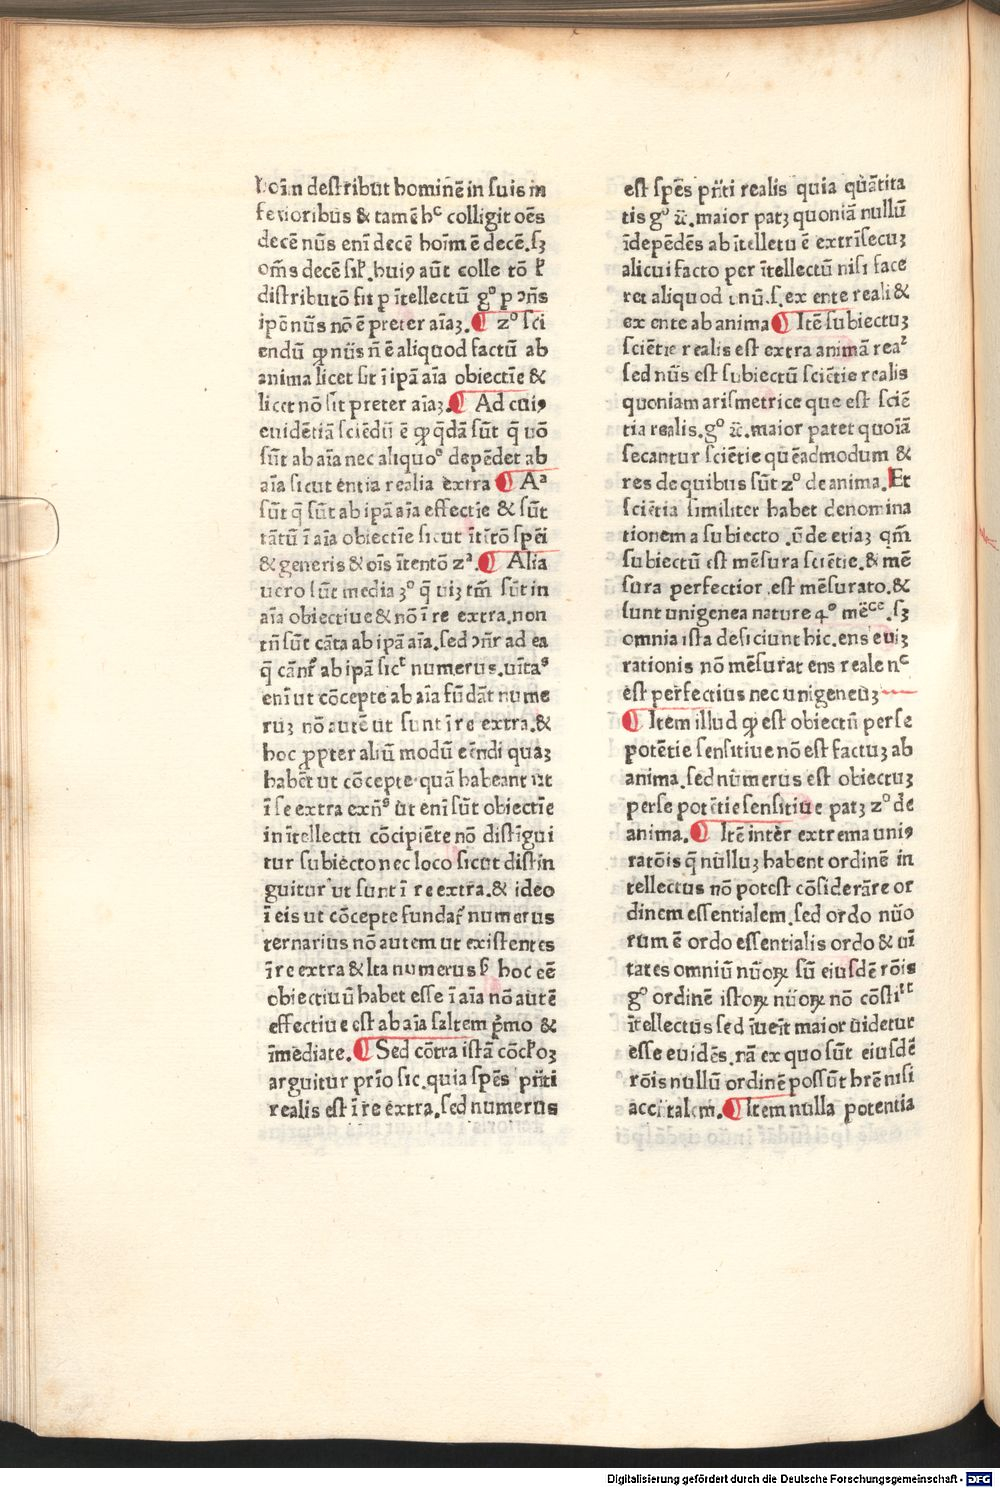 hoīn destribūt hominē in suis in
ferioribus & tamē hᶜ colligit oēs
decē nūs enī decē hoīm ē decē. sꝫ
om̄s decē sil̵. huiꝰ aūt colle tō l̵
distributō fit p ītellectū gº p ɔn̄s
ipō nūs nō ē preter aīaꝫ. ¶ zº sci
endū ꝙ nūs n̄ ē aliquod factū ab
anima licet sit ī ipā aīa obiectīe &
licet nō sit preter aīaꝫ. ¶ Ad cuiꝰ
euidētiā sciēdū ē ꝙ q̄dā sūt q̄ uō
sūt ab aīa nec aliquoᵒ depēdēt ab
aīa sicut entia realia extra ¶ Aª
sūt q̄ sūt ab ipā aīa effectīe & sūt
tātū ī aīa obiectīe sicut ītētō spēi
& generis & oīs ītentō zª. ¶ Alia
uero sūt media ʒº q̄ uiꝫ tm̄ sūt in
aīa obiectiue & nō ī re extra. non
tn̄ sūt cāta ab ipā aīa. sed ɔn̄r ad ea
q̄ cān̄t ab ipā sicᵗ numerus. uītaˢ
enī ut cōcepte ab aīa fūdāt nume
ruꝫ nō autē ut sunt ī re extra. &
hoc ꝓpter aliū modū eēndi quaꝫ
habēt ut cōcepte quā habeant ut
ī se extra exn̄ˢ ut enī sūt obiectīe
in ītellectu cōcipiēte nō distīgui
tur subiecto nec loco sicut distin
guitur ut sunt ī re extra. & ideo
ī eis ut cōcepte fundat̄ numerus
ternarius nō autem ut existentes
ī re extra & Ita numerus ẜ hoc eē
obiectiuū habet esse ī aīa nō autē
effectiue est ab aīa saltem p̄mo &
īmediate. ¶ Sed cōtra istā cōcl̵oꝫ
arguitur prīo sic. quia spēs p̄rīti
realis est ī re extra. sed numerus
est spēs pn̄ti realis quia quātita
tis gº ūc̄. maior patꝫ quoniā nullū
īdepēdēs ab ītelletu ē extrīsecuꝫ
alicui facto per ītellectū nisi face
ret aliquod unū. s. ex ente reali &
ex ente ab anima ¶ Itē subiectuꝫ
sciētie realis est extra animā reaᶻ
sed nūs est subiectū sciētie realis
quoniam arismetrice que est sciē
tia realis. gº ūc̄. maior patet quoīā
secantur sciētie quēadmodum &
res de quibus sūt zº de anima. Et
sciētia similiter habet denomina
tionem a subiecto ūde etiaꝫ qm̄
subiectū est mēsura sciētie. & mē
sura perfectior est mēsurato. &
sunt unigenea nature 4º mēᶜᵉ. sꝫ
omnia ista deficiunt hic. ens euiꝫ
rationis nō mēsurat ens reale nᶜ
est perfectius nec unigeneuꝫ
¶ Item illud ꝙ est obiectū per se
potētie sensitiue nō est factuꝫ ab
anima. sed numerus est obiectuꝫ
per se potētie sensitiue patꝫ zº de
anima. ¶ Itē inter extrema uniꝰ
ratōis q̄ nulluꝫ habent ordinē in
tellectus nō potest cōsiderāre or
dinem essentialem. sed ordo nūo
rum ē ordo essentialis ordo & uī
tates omniū nūoꝝ sū eiusdē rōis
gº ordinē istoꝝ nūoꝝ nō cōstiᵗᵗ
ītellectus sed īueīt maior uidetur
esse euidēs. nā ex quo sūt eiusdē
rōis nullū ordinē possūt hr̄e nisi
acci talem. ¶ Item nulla potentia
Digitalisierung gefördert durch die Deutsche Forschungsgemeinschaft - DFG